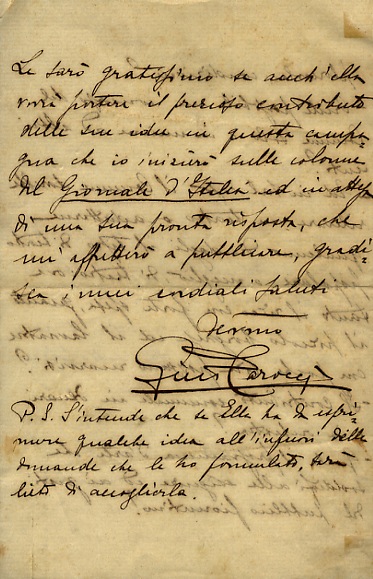 Le sarò gratissimo se anch'ella
vorrà portare il prezioso contributo
delle sue idee in questa campa-
gna che io inizierò sulle colonne
del Giornale d'Italia ed in attesa
di una sua pronta risposta, che
mi affretterò a pubblicare, gradi-
sca i miei cordiali saluti
Devmo
Carocci
P. S. S'intende che se Ella ha da espri-
mere qualche idea all'infuori delle
domande che le ho formulato, sarò
lieto di accogliela.